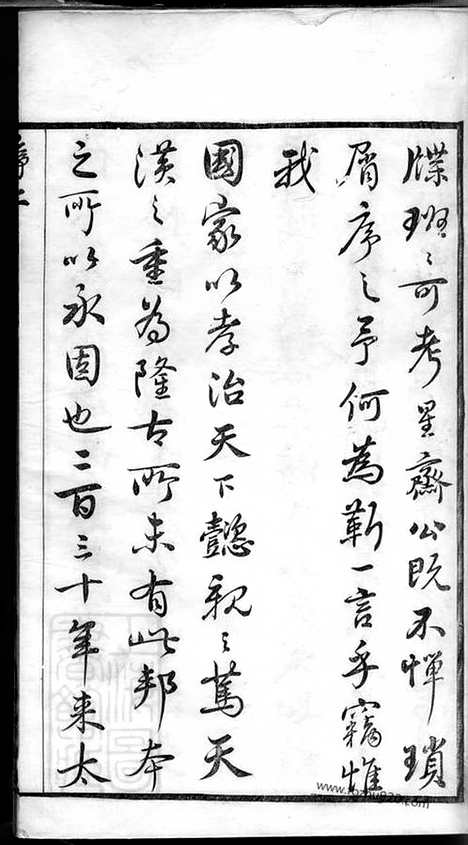 牒班〻可考星齋公既不憚瑣
屑序之予何為靳一言乎竊惟
我
國家以孝治天下懿親之篤天
漢之重為隆古所未有此邦本
之所以永固也二百三十年来太
序二
www.